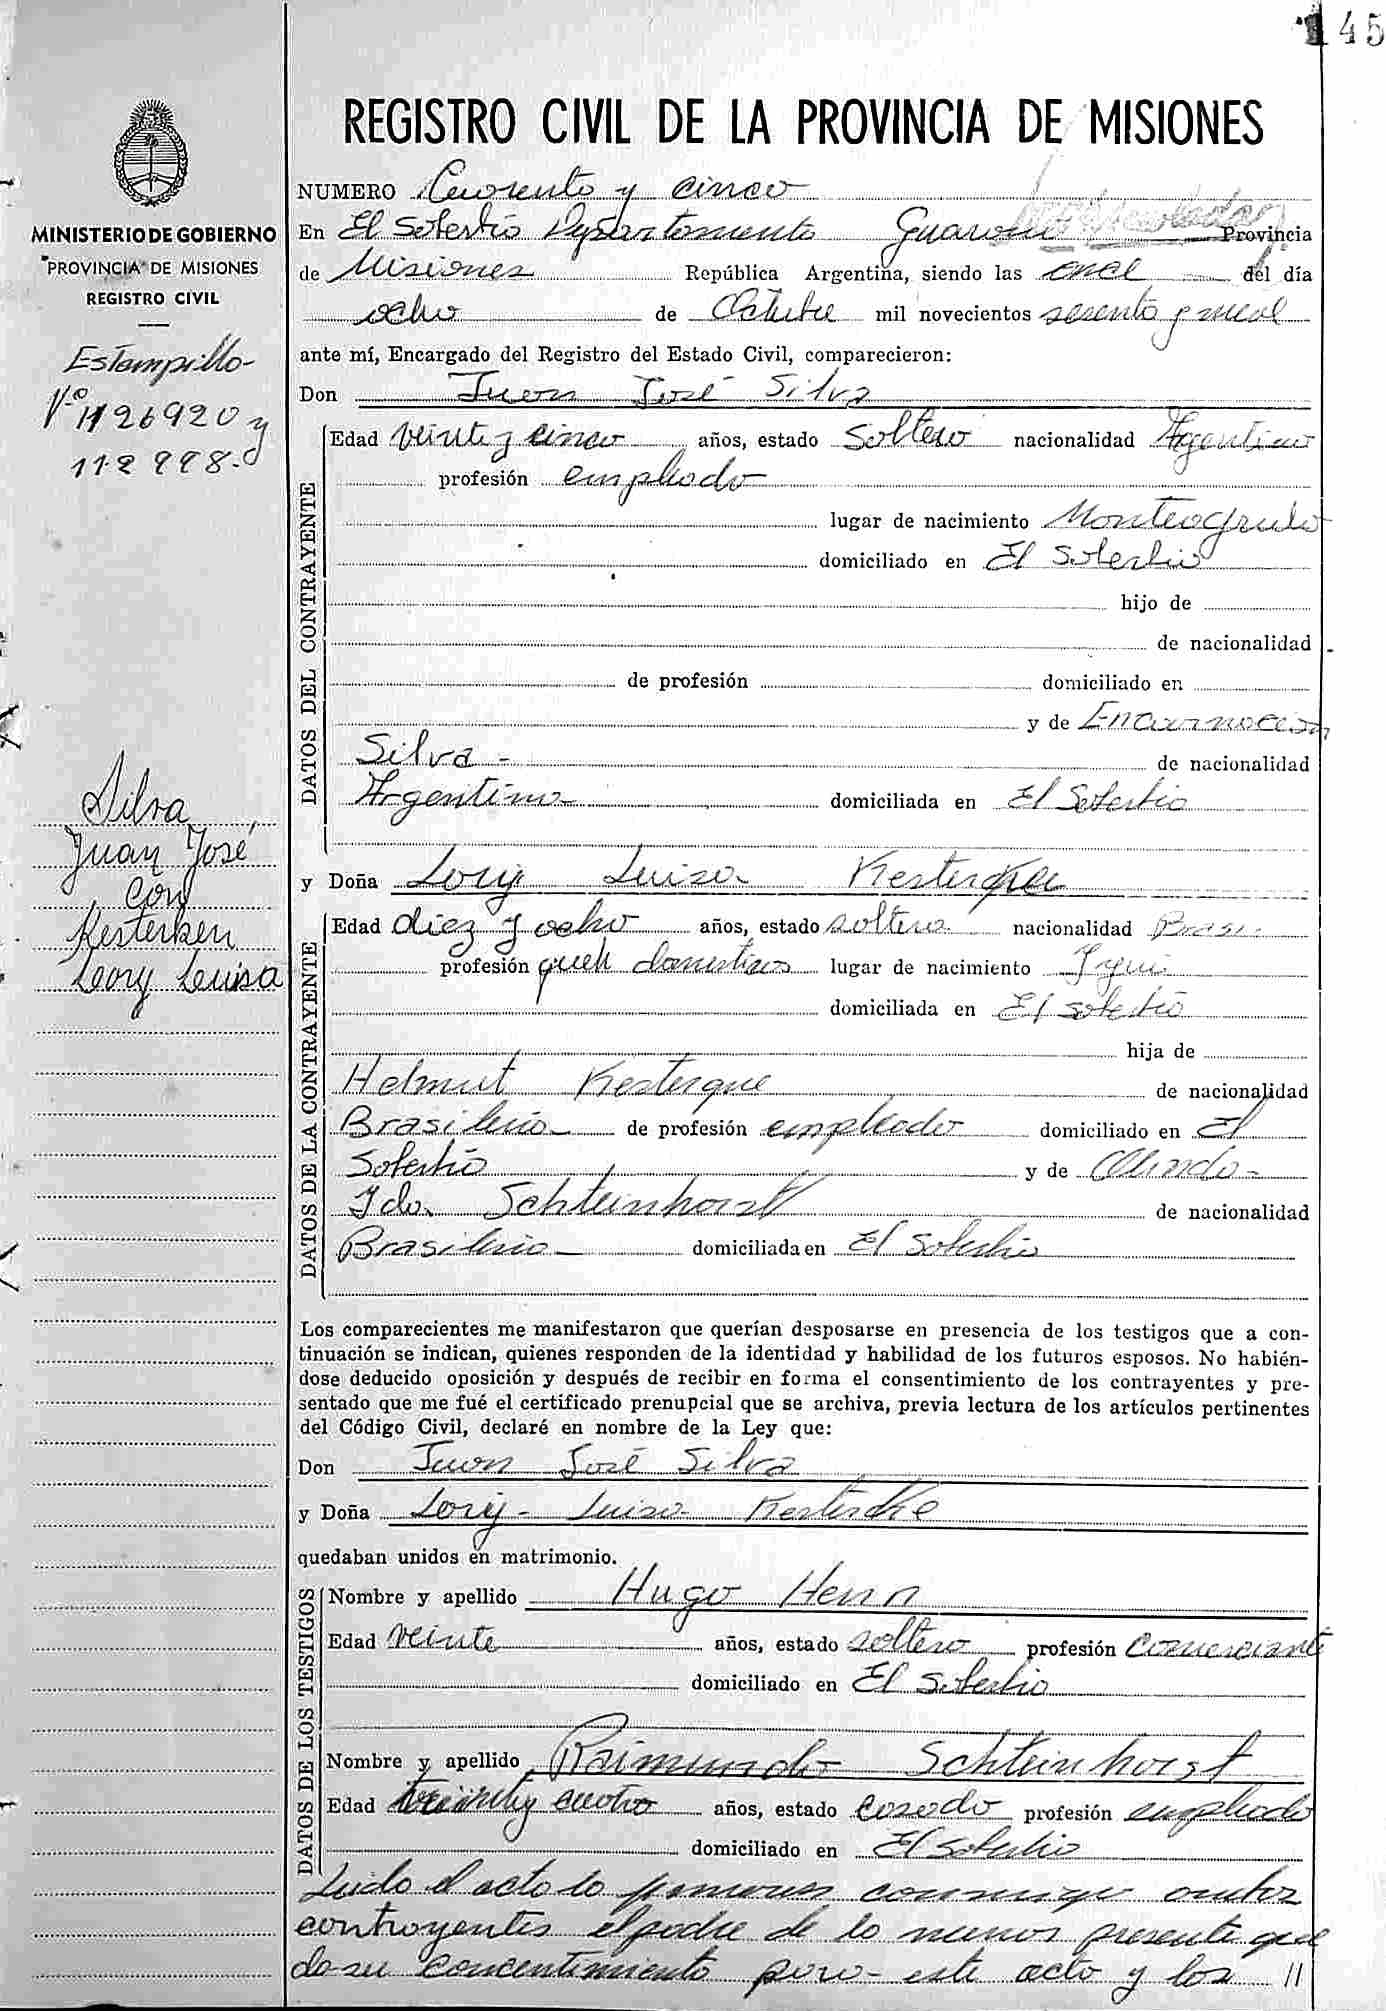 145
REGISTRO CIVIL DE LA PROVINCIA DE MISIONES
MINISTERIO DE GOBIERNO
PROVINCIA DE MISIONES
REGISTRO CIVIL
Estampilla
Nº 1126920 y
Silva
Juan José
con
Kesterken
Leory Luisa
NUMERO Cuarenta y cinco
En El Soberbio Departamento Guarani Provincia
de Misiones República Argentina, siendo las once del día
ocho de Octubre mil novecientos sesenta y nueve
ante mí, Encargado del Registro del Estado Civil, comparecieron:
Don Juan José Silva
DATOS DEL CONTRAYENTE
Edad veinte y cinco años, estado Soltero nacionalidad Argentino
profesión empleado
lugar de nacimiento Monteagudo
domiciliado en El Soberbio
hijo de
de nacionalidad
de profesión domiciliado en
y de Encarnacion
Silva - de nacionalidad
Argentina domiciliada en El Soberbio
y Doña Lory Luisa
DATOS DE LA CONTRAYENTE
Edad diez y ocho años, estado soltera nacionalidad Brasi-
profesión queh domesticos lugar de nacimiento Iyui
domiciliada en El Soberbio
hija de
Helmut Kesterque de nacionalidad
Brasileño de profesión empleado domiciliado en El
Soberbio y de Olinda
Ida Schteinhorst de nacionalidad
Brasileña domiciliada en El Soberbio
Los comparecientes me manifestaron que querían desposarse en presencia de los testigos que a con-
tinuación se indican, quienes responden de la identidad y habilidad de los futuros esposos. No habién-
dose deducido oposición y después de recibir en forma el consentimiento de los contrayentes y pre-
sentado que me fué el certificado prenupcial que se archiva, previa lectura de los artículos pertinentes
del Código Civil, declaré en nombre de la Ley que:
Don Juan José Silva
y Doña Lory Luisa Kesterche
quedaban unidos en matrimonio.
DATOS DE LOS TESTIGOS
Nombre y apellido Hugo Henn
Edad veinte años, estado soltero profesión comerciante
domiciliado en El Soberbio
Nombre y apellido Raimundo Schteinhorst
Edad treinta y cuatro años, estado casado profesión empleado
domiciliado en El Soberbio
Leido el acto lo firmaron conmigo ambos
contrayentes el padre de la menor presente que
da su concentimiento para este acto y los //